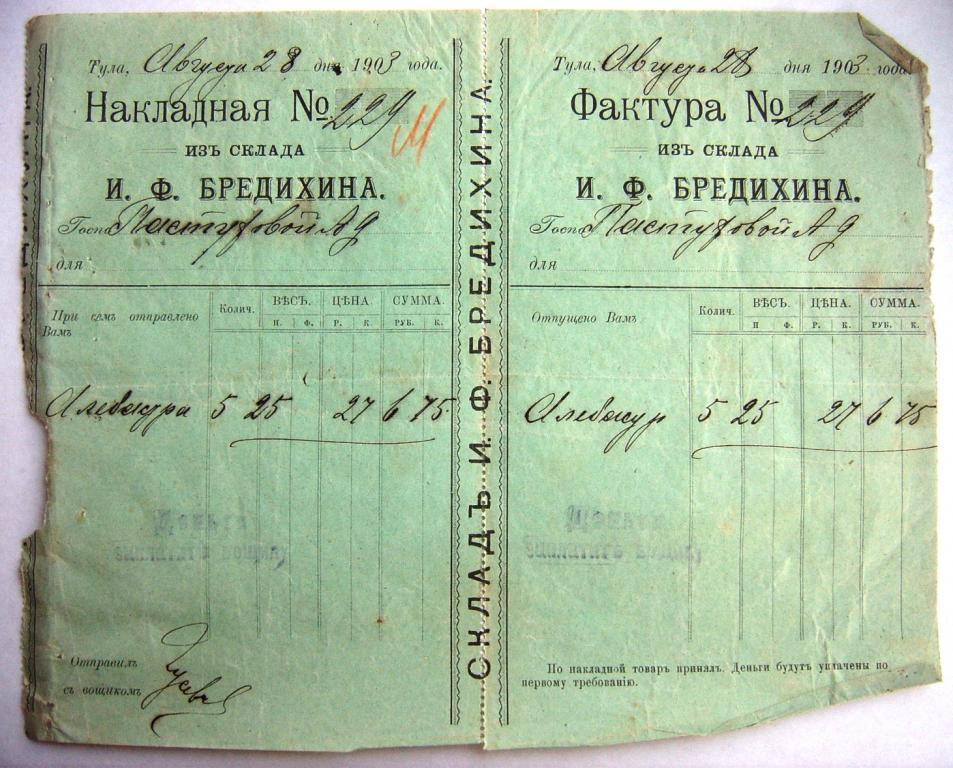 Тула, Августа 28 дня 1903 года.
Накладная № 229
М
изъ склада
И. Ф. БРЕДИХИНА.
Госпо Пастуховой А Д
для
При семъ отправлено Вамъ
Колич. ВѢСЪ. ЦѢНА. СУММА.
П. Ф. Р. К. РУБ. К.
Алебастра 5 25 27 6 75
Деньги
заплатить вощику
Отправилъ
съ вощикомъ
СКЛАДЪ И. Ф. БРЕДИХИНА.
Тула, Августа 28 дня 1903 года
Фактура № 229
изъ склада
И. Ф. БРЕДИХИНА.
Госпо Пастуховой А Д
для
Отпущено Вамъ
Колич. ВѢСЪ. ЦѢНА. СУММА.
П Ф. Р. К. РУБ. К.
Алебастр 5 25 27 6 75
Деньги
заплатить вощику
По накладной товаръ принялъ. Деньги будутъ уплачены по
первому требованію.